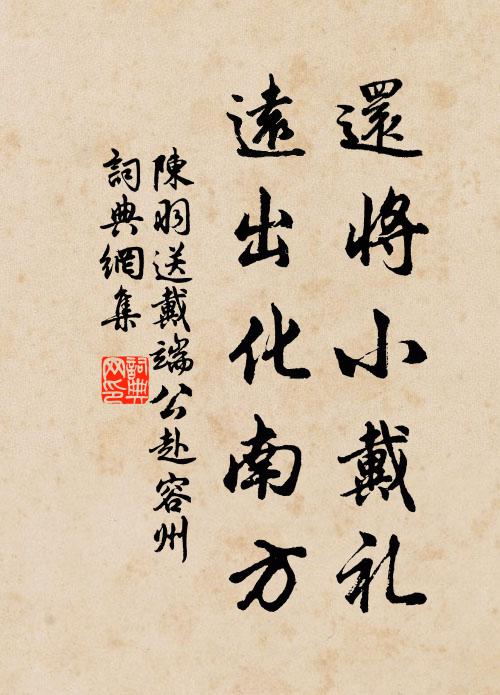 還將小戴礼
遠出化南方
陳羽送戴端公赴容州
詞典網集
詞典网印